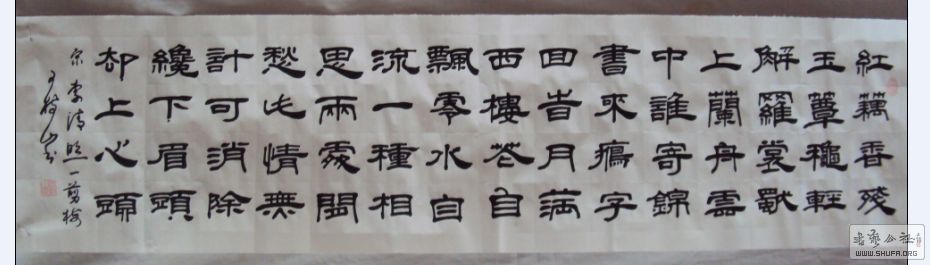 紅藕香殘
玉簟穐輕
解羅裳獨
上蘭舟雲
中誰寄錦
書來鴈字
回旹月滿
西樓花自
飄零水自
流一種相
思兩處閒
愁此情無
計可消除
纔下眉頭
却上心頭
宋李清照一剪梅
樹山书
书艺公社
WWW.SHUFA.ORG